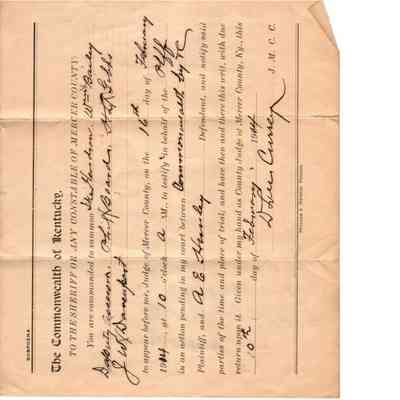 SUBPOENA
The Commonwealth of Kentucky.
TO THE SHERIFF OR ANY CONSTABLE OF MERCER COUNTY:
You are commanded to summon Wm Bailey
J W Davenport
to appear before me, Judge of Mercer County, on the 16th day of February
1914, at 10 o'clock A M., to testify in behalf of the Plff
in an action pending in my court between Commonwealth by &C
Plaintiff, and A E Hanley Defendant, and notify said
parties of the time and place of trial; and have then and there this writ, with due
return upon it. Given under my hand as County Judge of Mercer County, Ky., this
10th day of February 1914
D Lee Currey J. M. C. C.